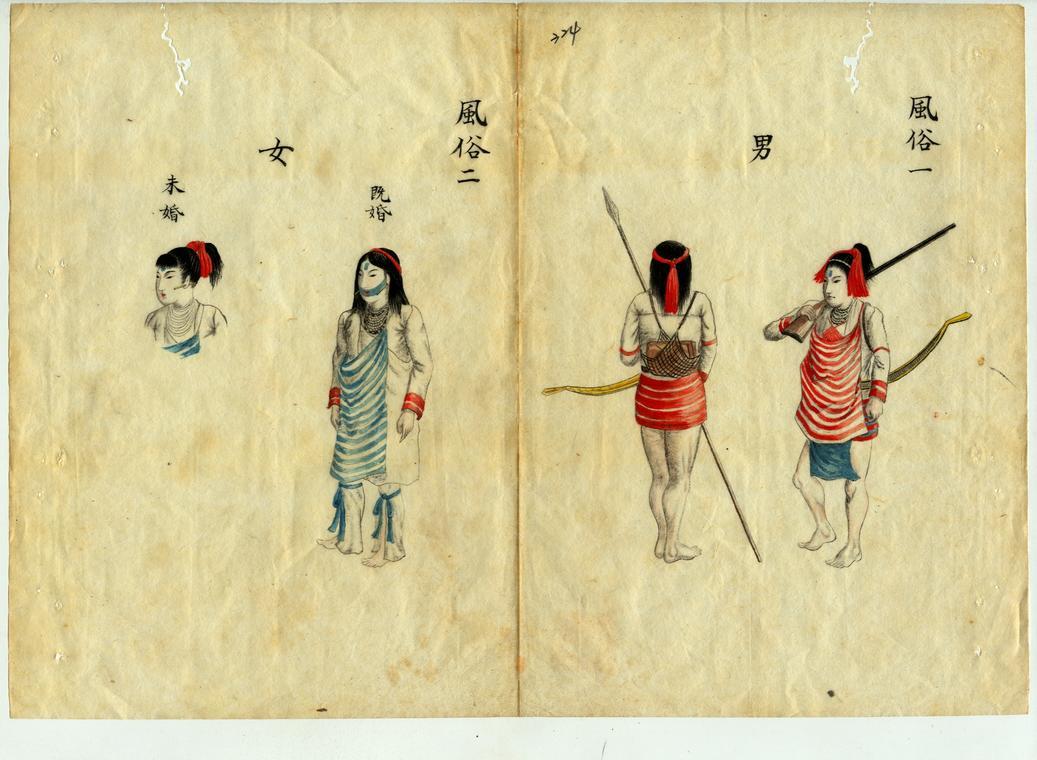 224
風俗一
男
風俗二
既婚
女
未婚